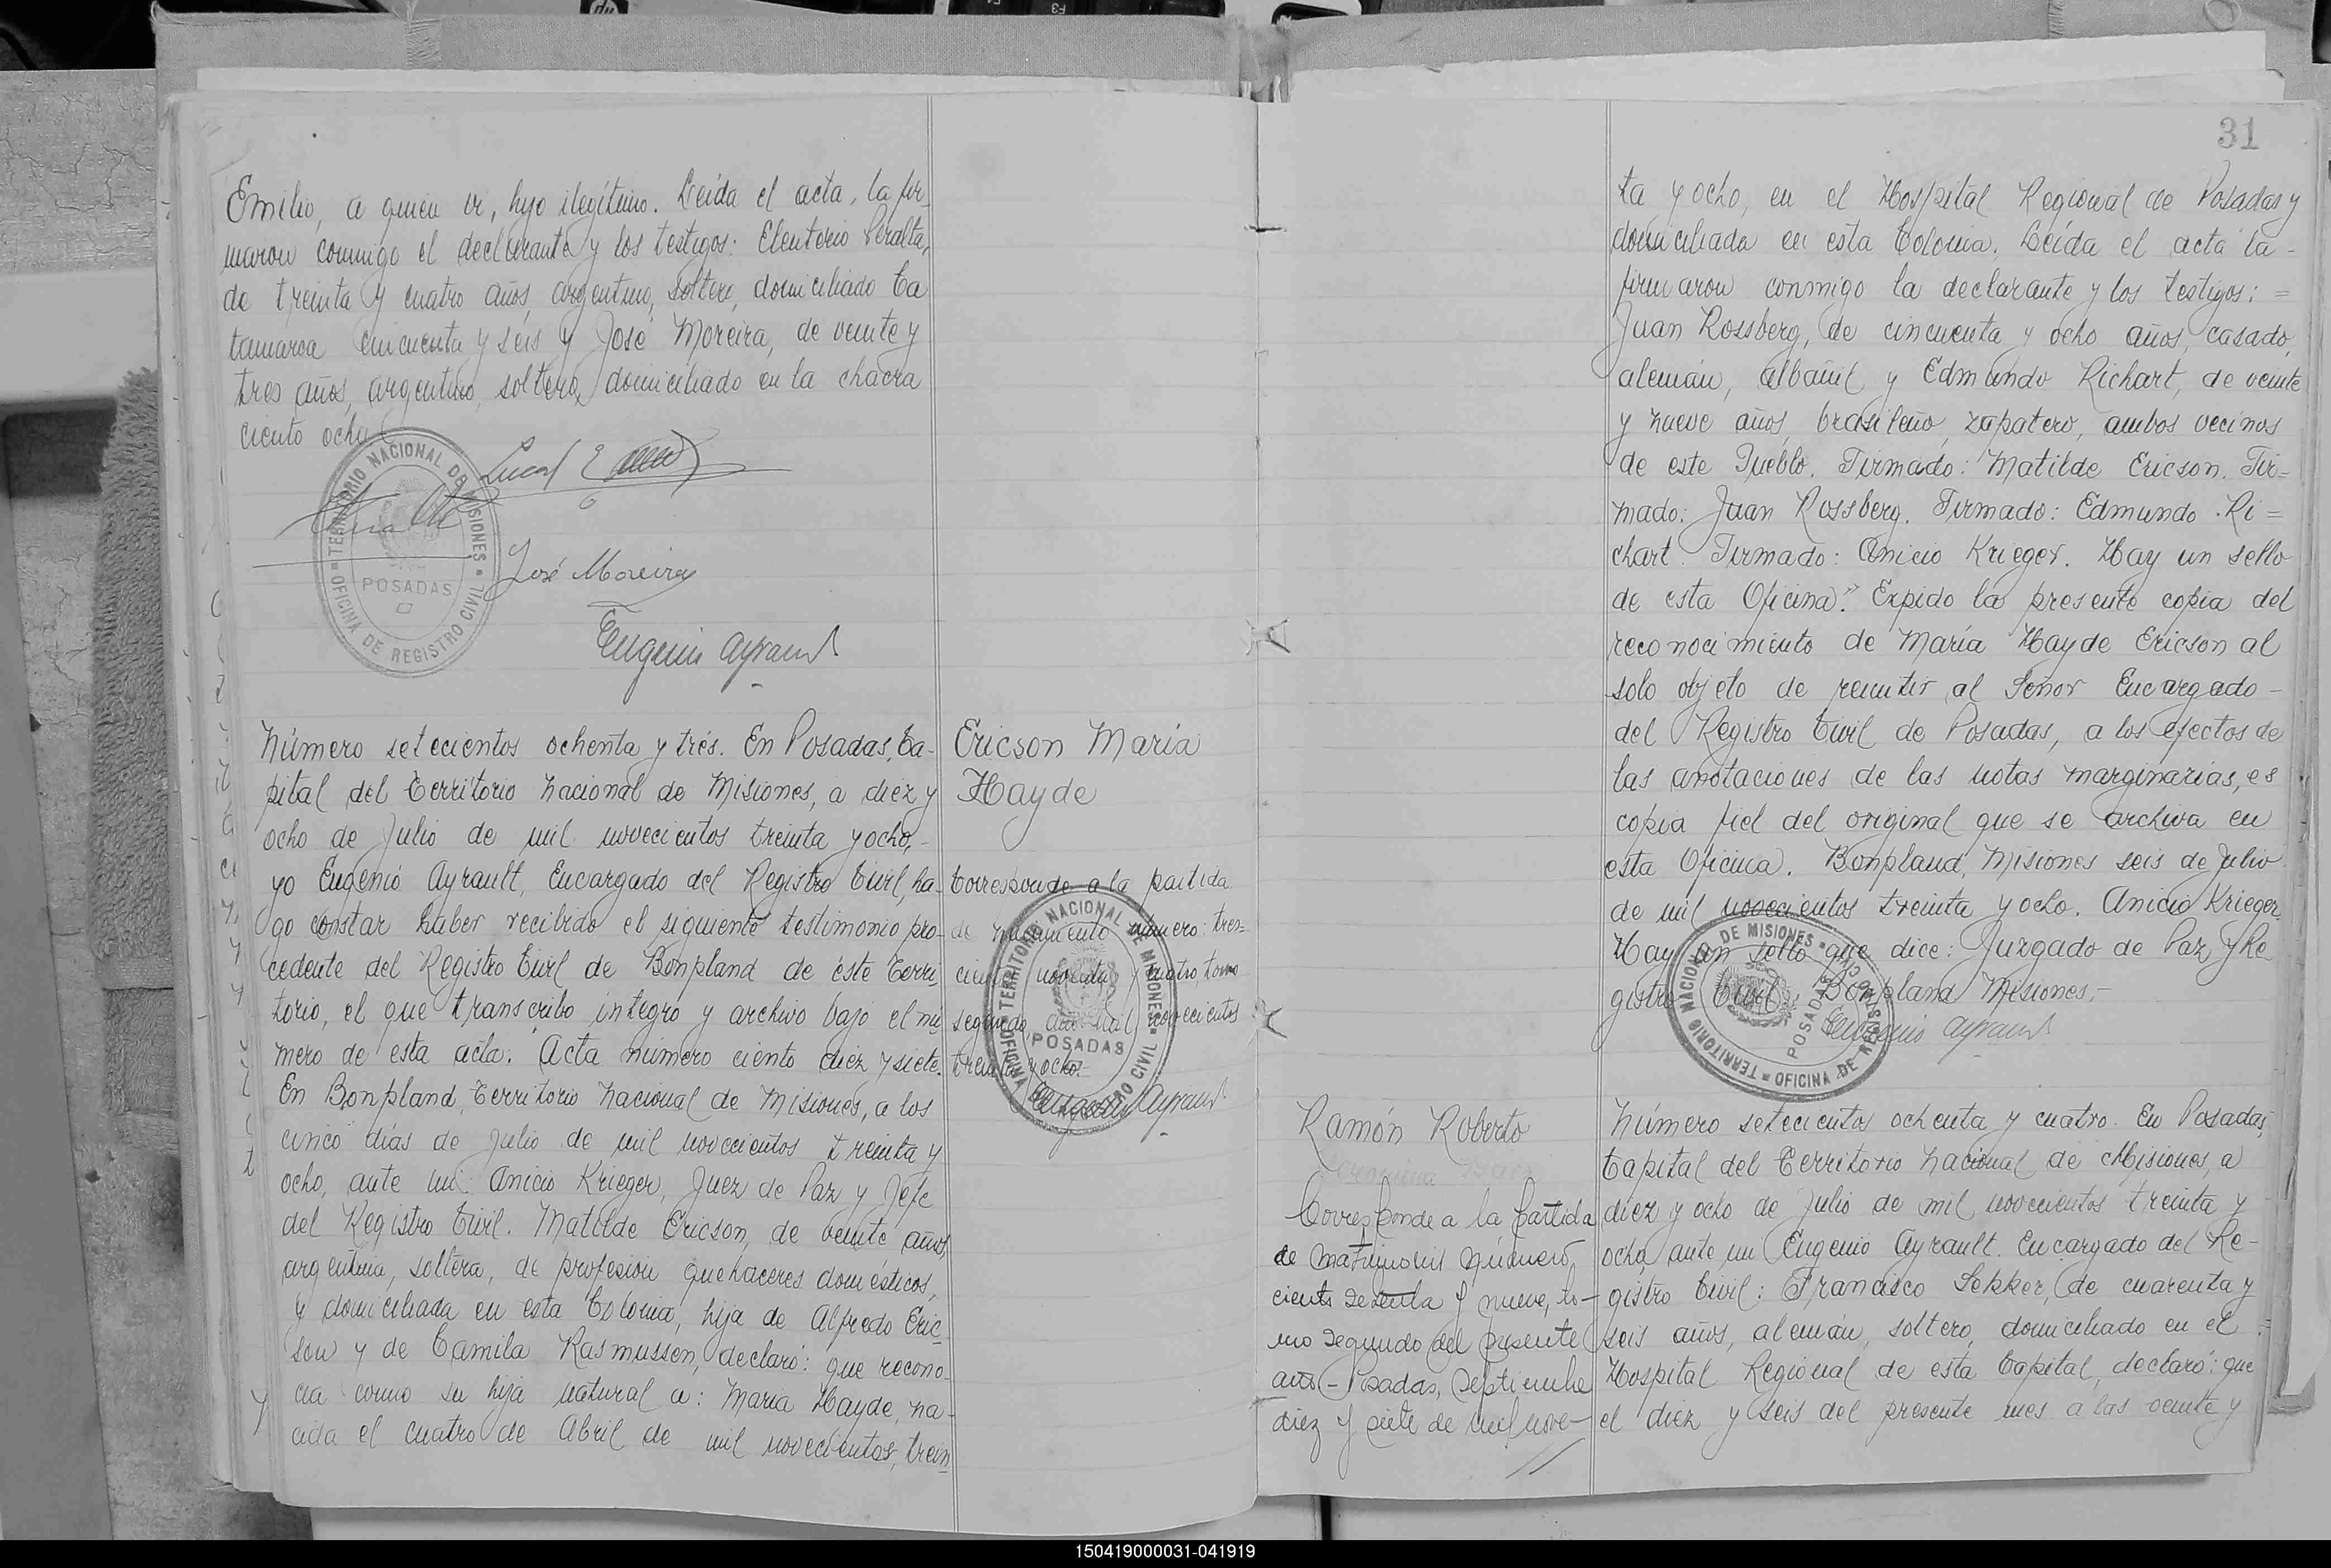 Emilio, a quien vi, hijo ilegítimo. Leída el acta, la fir-
maron conmigo el declarante y los testigos: Eleuterio Peralta,
de treinta y cuatro años, argentino, soltero, domiciliado Ca
tamarca cincuenta y seis y José Moreira, de veinte y
tres años, argentino, soltero, domiciliado en la chacra
ciento ocho
TERRITORIO NACIONAL DE MISIONES
OFICINA DE REGISTRO CIVIL
POSADAS
José Moreira
Eugenio Ayrault
Número setecientos ochenta y tres. En Posadas, Ca-
pital del Territorio Nacional de Misiones, a diez y
ocho de Julio de mil novecientos treinta y ocho,-
yo Eugenio Ayrault, Encargado del Registro Civil, ha-
go constar haber recibido el siguiente testimonio pro-
cedente del Registro Civil de Bonpland de éste Terri
torio, el que transcribo íntegro y archivo bajo el nú
mero de esta acta. Acta número ciento diez y siete.
En Bonpland, Territorio Nacional de Misiones, a los
cinco días de Julio de mil novecientos treinta y
ocho, ante mi Anicio Krieger, Juez de Paz y Jefe
del Registro Civil. Matilde Ericson, de veinte años,
argentina, soltera, de profesión quehaceres domésticos,
y domiciliada en esta Colonia, hija de Alfredo Eric
son y de Camila Rasmussen, declaró: que recono-
cia como su hija natural a: María Hayde, na-
cida el cuatro de Abril de mil novecientos, trein
Ericson María
Hayde
Corresponde a la partida
de nacimiento número: tres=
cientos noventa y cuatro, tomo
segundo año mil novecientos
treinta y ocho.-
TERRITORIO NACIONAL DE MISIONES
OFICINA DE REGISTRO CIVIL
POSADAS
Eugenio Ayrault
31
ta y ocho, en el Hospital Regional de Posadas y
domiciliada en esta Colonia. Leída el acta la-
firmaron conmigo la declarante y los testigos: =
Juan Rossberg, de cincuenta y ocho años, casado,
alemán, albañil y Edmundo Richart, de veinte
y nueve años, brasileño, zapatero, ambos vecinos
de este Pueblo. Firmado: Matilde Ericson. Fir=
mado: Juan Rossberg. Firmado: Edmundo Ri=
chart. Firmado: Anicio Krieger. Hay un sello
de esta Oficina." Expido la presente copia del
reconocimiento de María Hayde Ericson al
solo objeto de remitir al Señor Encargado-
del Registro Civil de Posadas, a los efectos de
las anotaciones de las notas marginarias, es
copia fiel del original que se archiva en
esta Oficina. Bonpland, Misiones seis de Julio
de mil novecientos treinta y ocho. Anicio Krieger
Hay un sello que dice: Juzgado de Paz y Re
gistro Civil. Bonpland Misiones.-
Eugenio Ayrault
TERRITORIO NACIONAL DE MISIONES
OFICINA DE REGISTRO CIVIL
POSADAS
Ramón Roberto
Corresponde a la partida
de matrimonio número
ciento sesenta y nueve, to-
mo segundo del presente
año- Posadas, Septiembre
diez y siete de mil nove-
Número setecientos ochenta y cuatro. En Posadas,
Capital del Territorio Nacional de Misiones, a
diez y ocho de Julio de mil novecientos treinta y
ocho, ante mi Eugenio Ayrault. Encargado del Re-
gistro Civil: Francisco Sekker, de cuarenta y
seis años, alemán, soltero, domiciliado en el
Hospital Regional de esta Capital, declaró: que
el diez y seis del presente mes a las veinte y
150419000031-041919